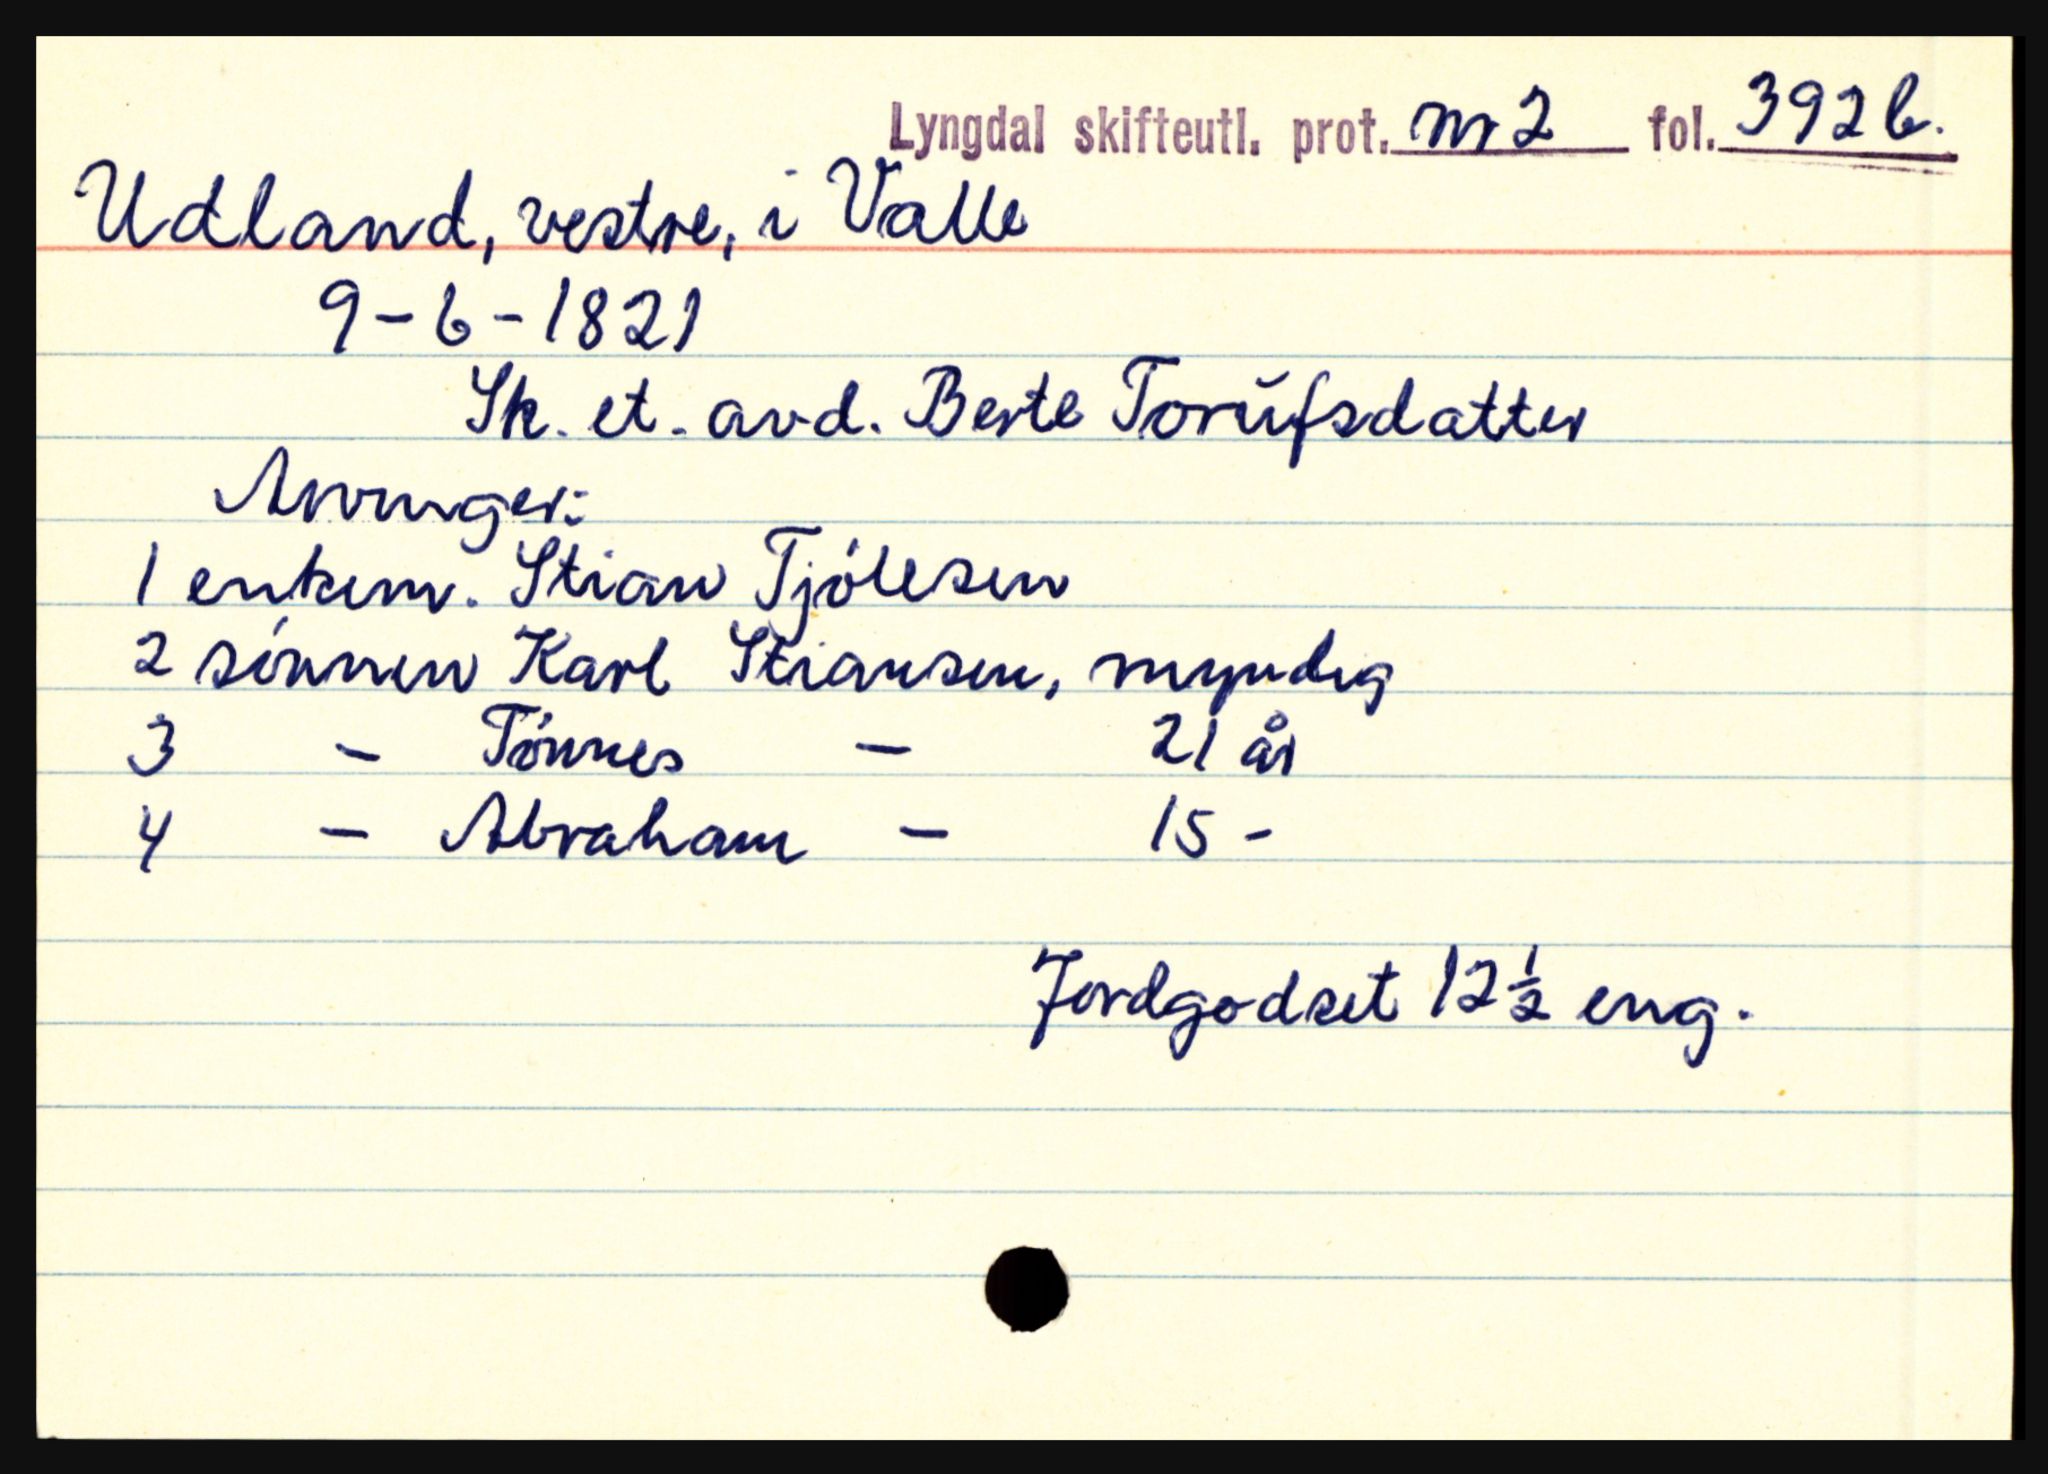 Lyngdal skifteutl. prot. nr 2 fol. 392b.
Udland, vestre, i Valle
9-6-1821
Sk. et. avd. Berte Torŭfsdatter
Arvinger:
1 enkem. Stian Tjólesen
2 sónnen Karl Stiansen, myndig
3 - Tónnes - 21 år
4 - Abraham - 15 -
Jordgodset 12 ½ eng.